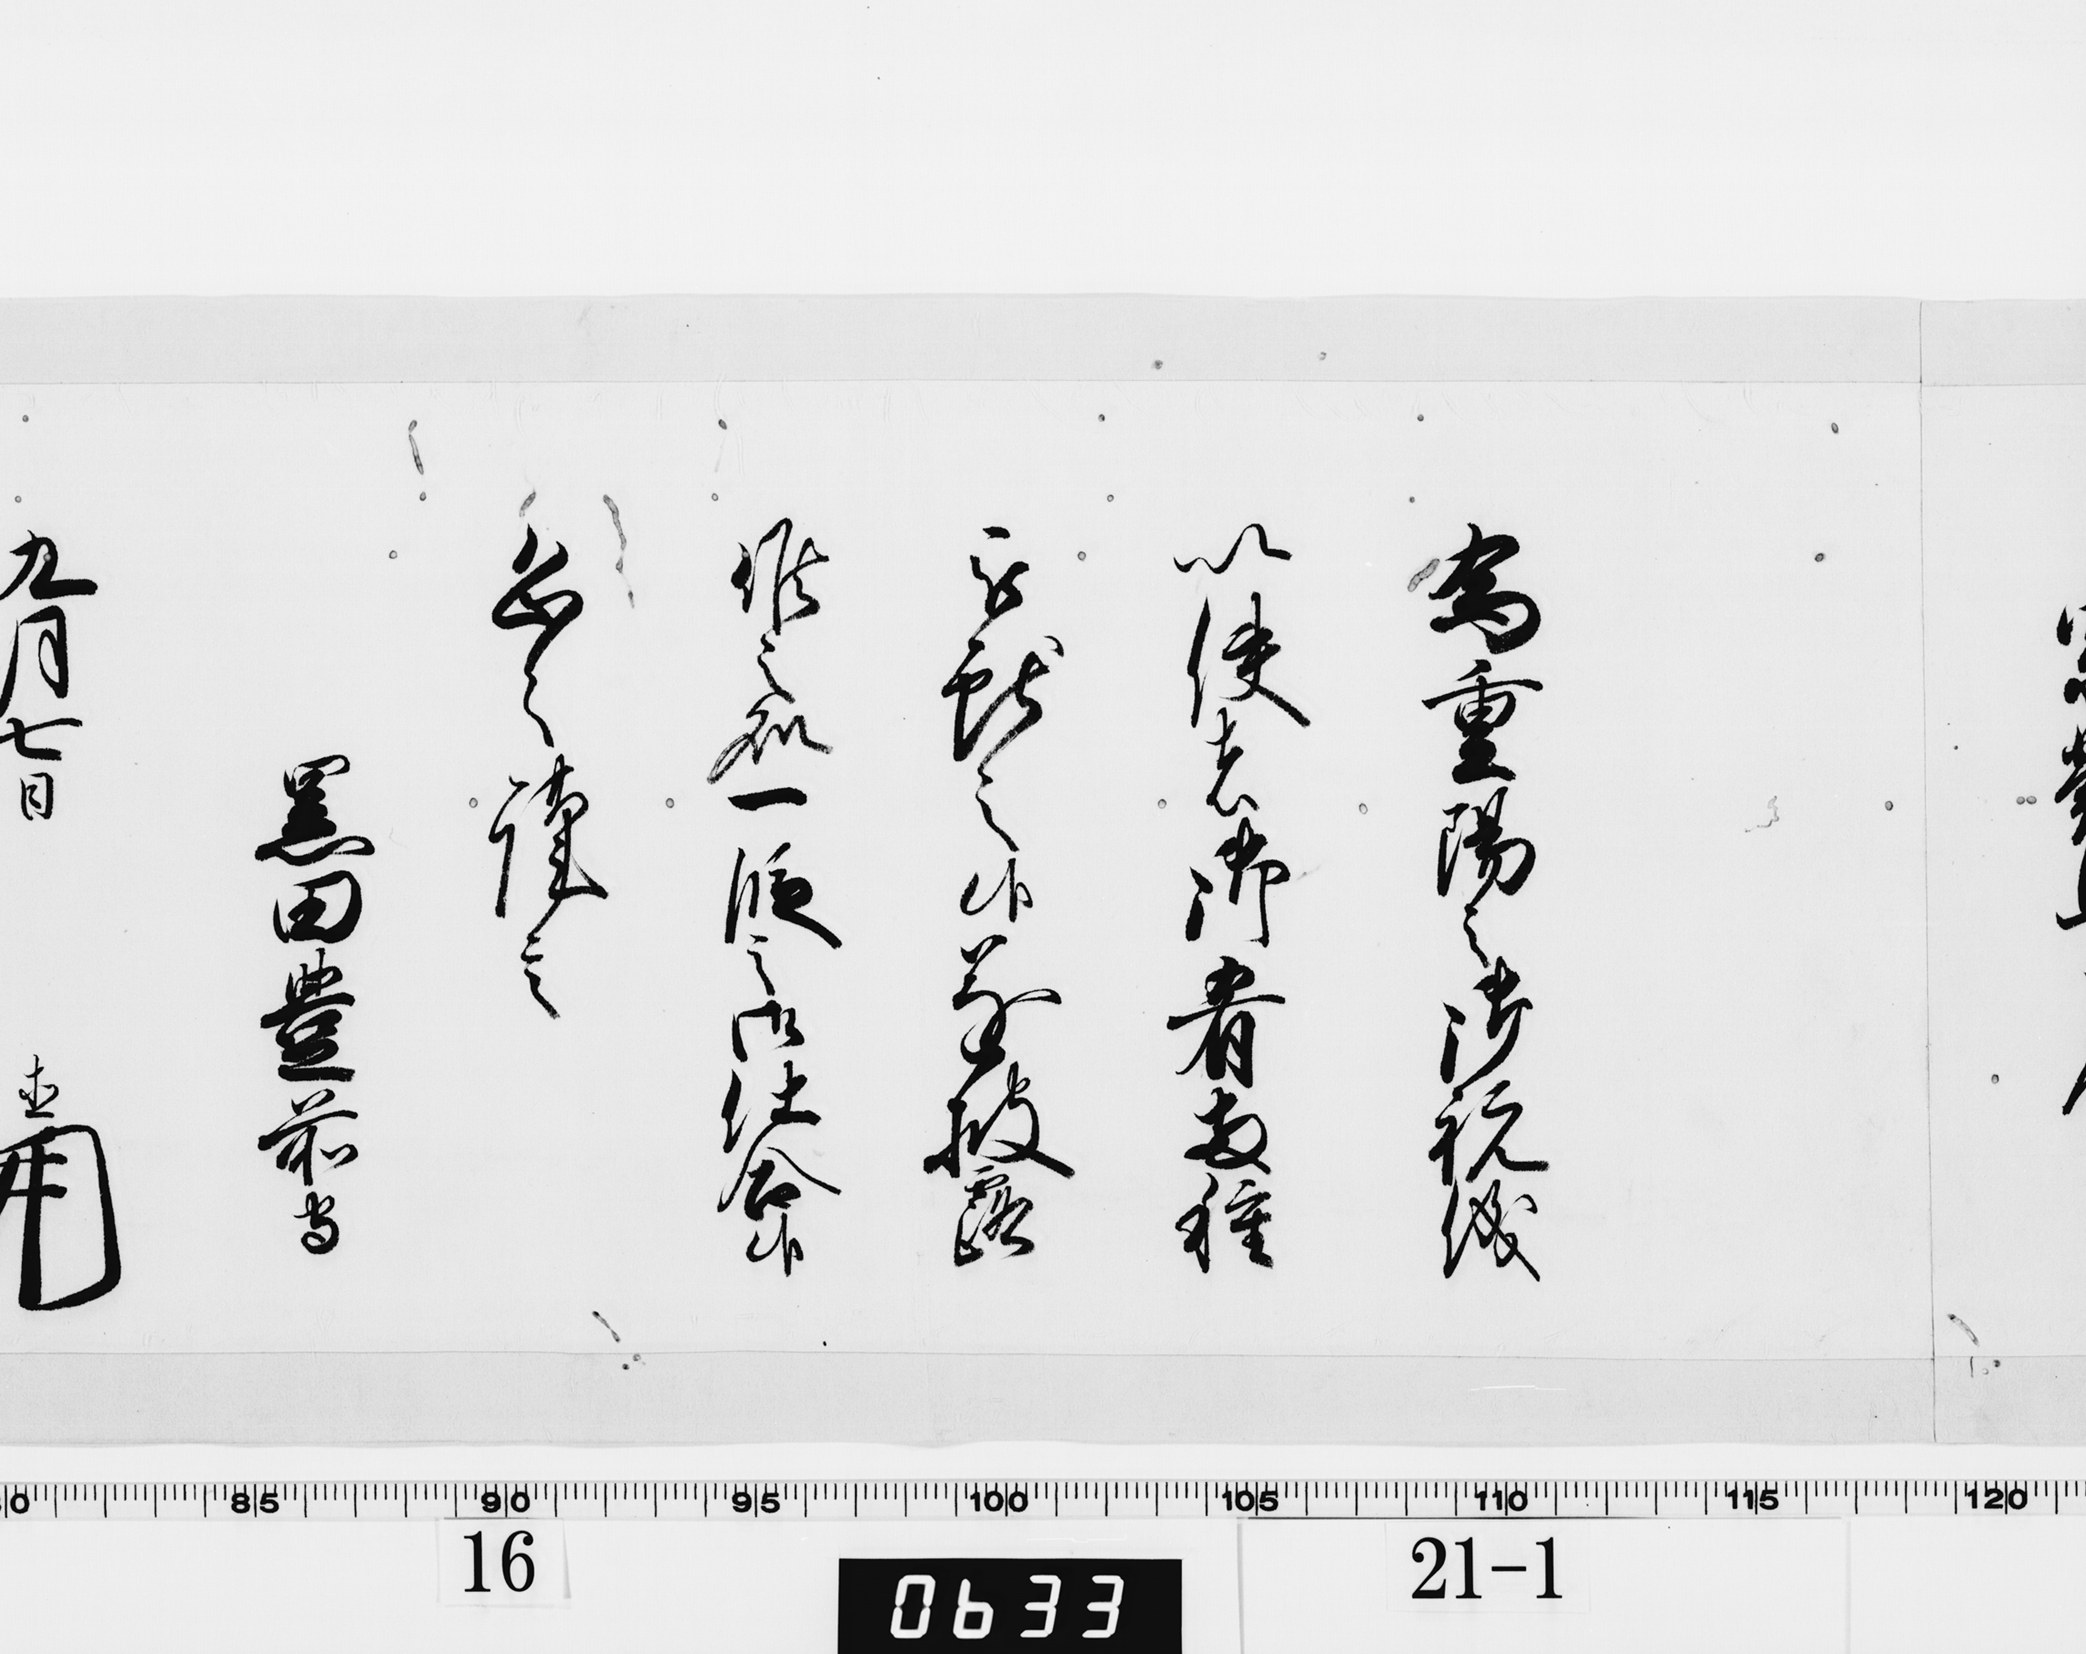 為重陽之御祝儀
以使者御肴両種
被献之候遂披露
候之処一段之御仕合候
恐々謹言
黒田豊前守
九月七日 直
85 90 95 100 105 110 115 120
16
0633
21-1